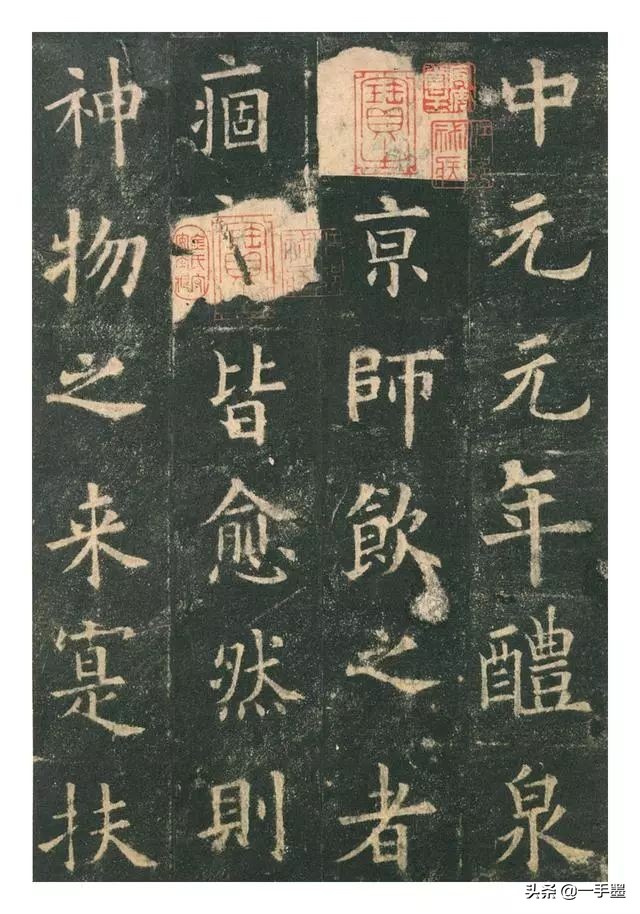 中元元年醴泉
亰師飲之者
痼皆愈然則
神物之来寔扶
头条 @一手墨